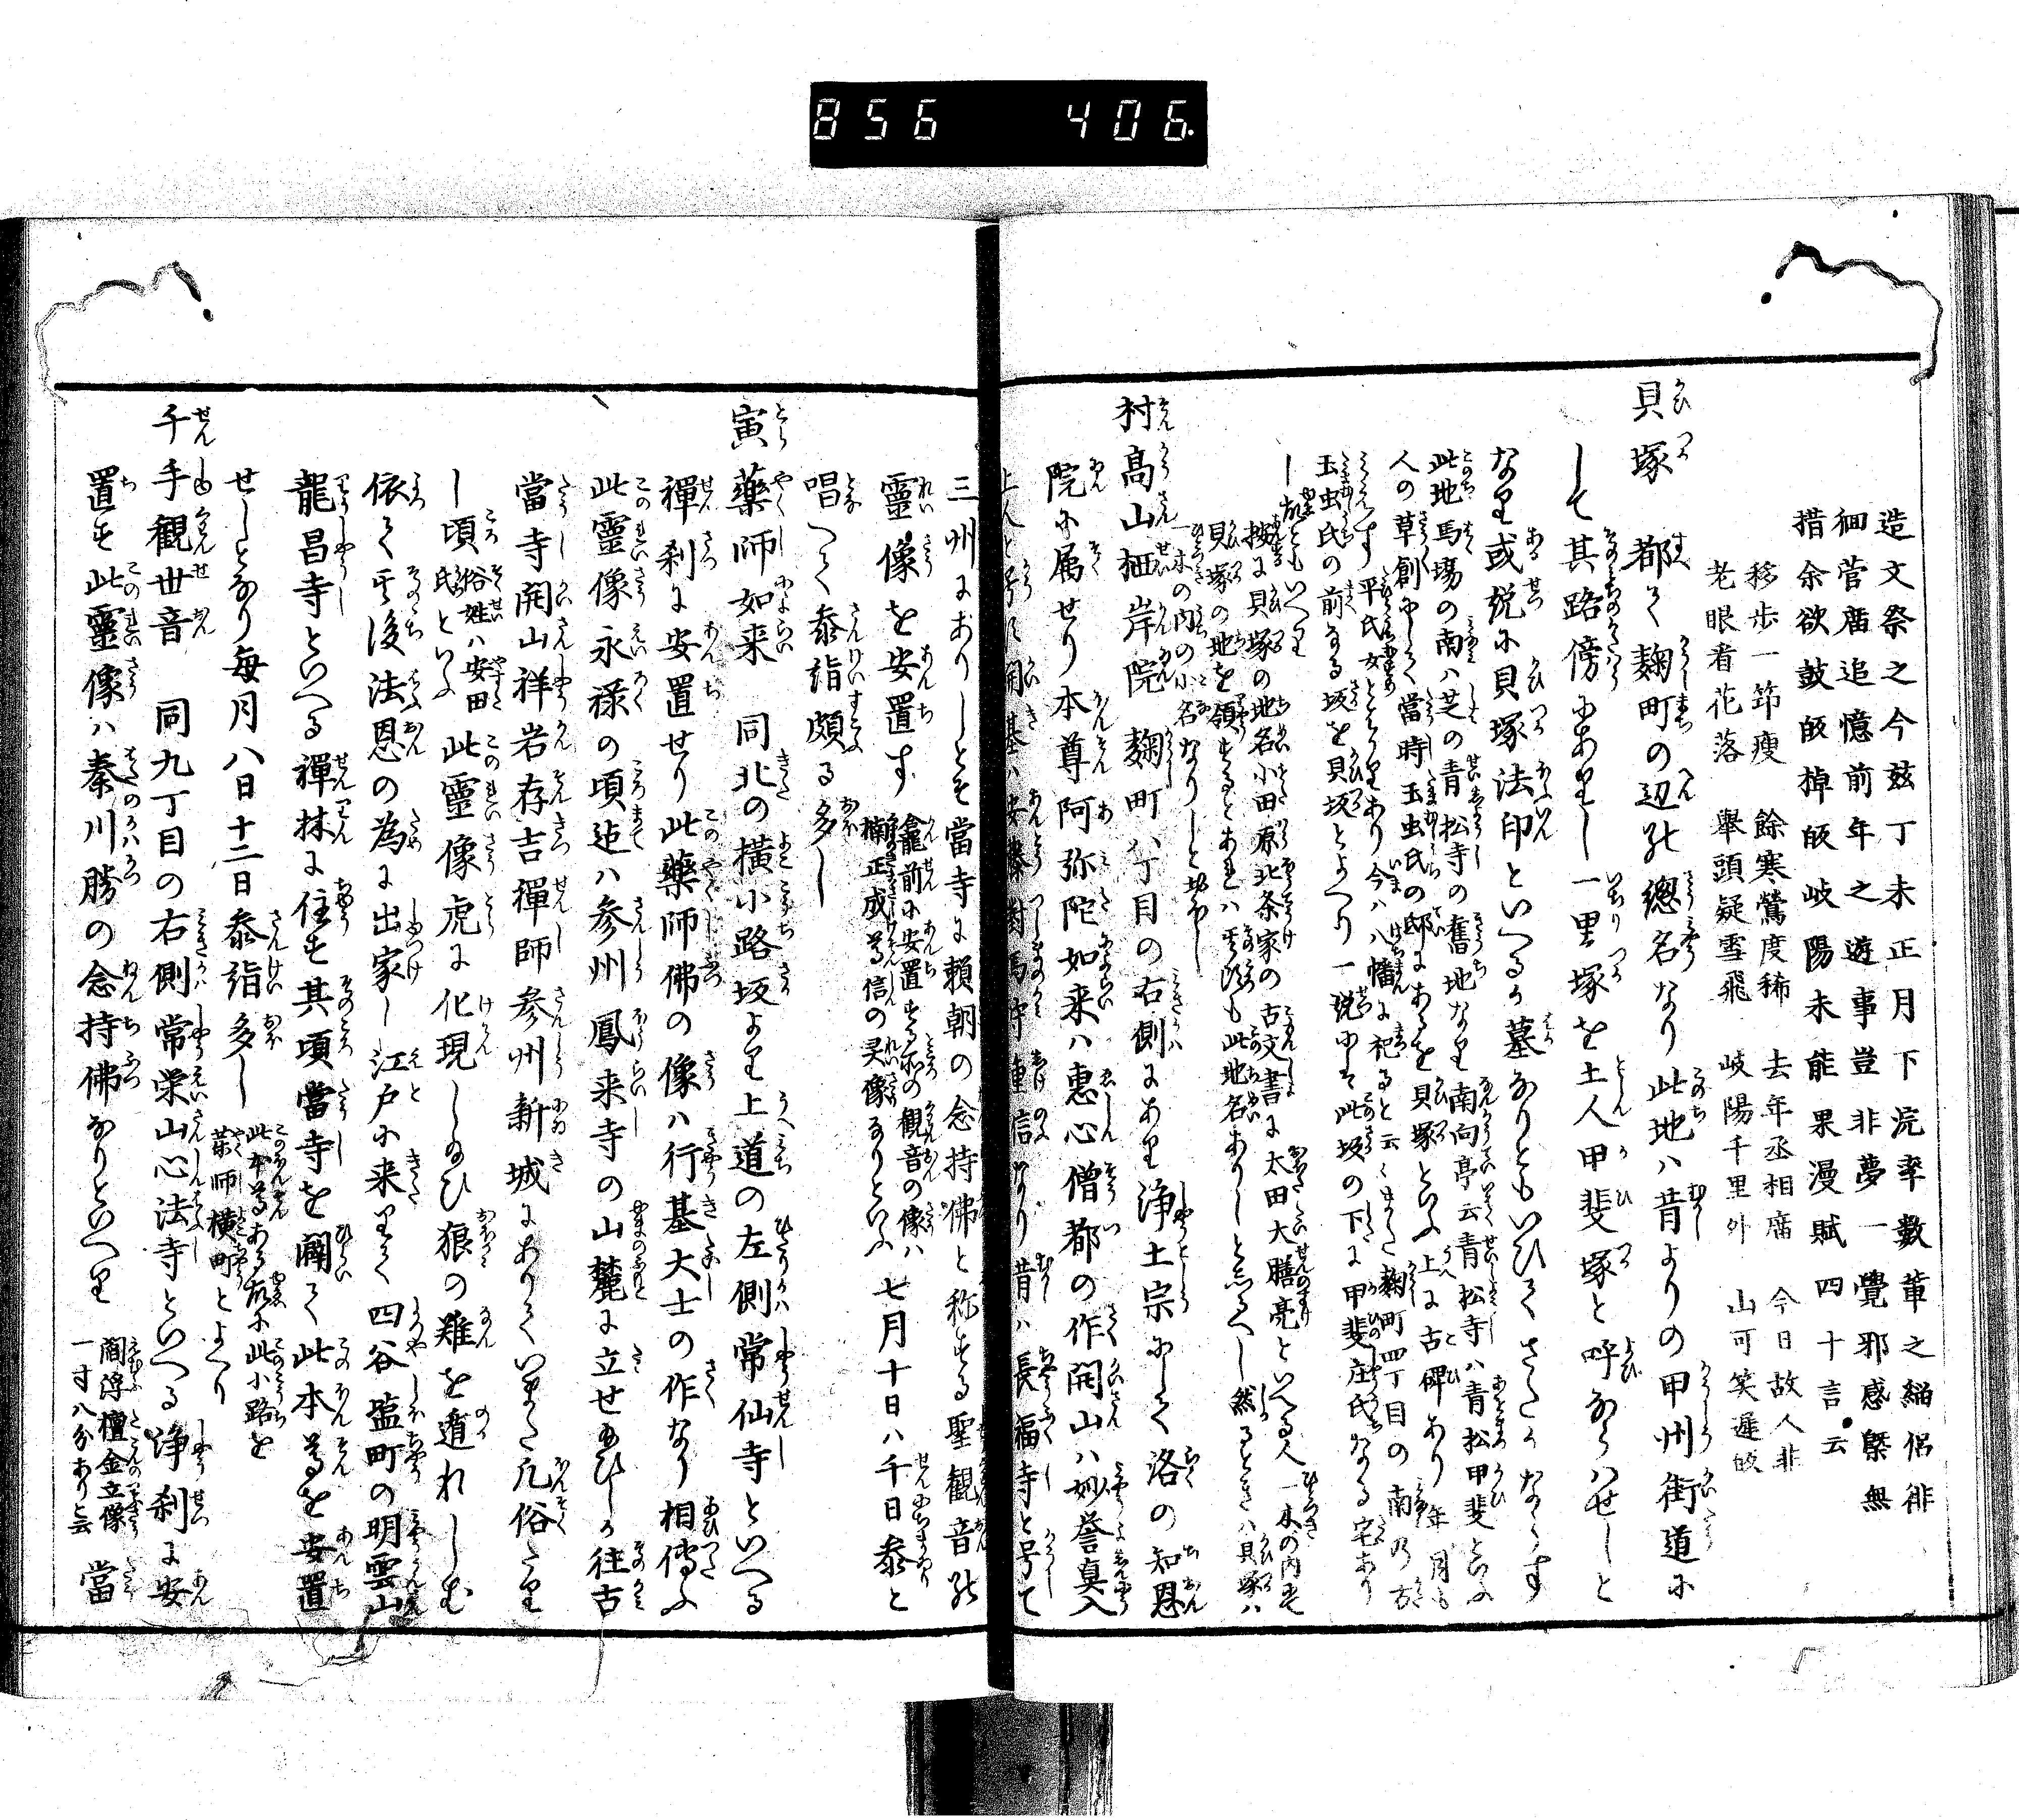 856 406.
造文祭之今玆丁未正月下浣率數輩之緇侶徘
徊菅廟追憶前年之遊事豈非夢一覺邪感槩無
措余欲鼓皈棹皈岐陽未能果漫賦四十言云
移歩一筇瘦 餘寒鶯度稀 去年丞相廟 今日故人非
老眼看花落 擧頭疑雪飛 岐陽千里外 山可笑遲皈
貝塚 都て麹町の辺の總名なり此地ハ昔よりの甲州街道に
して其路傍にありし一里塚を土人甲斐塚と呼ならハせしと
なり或説に貝塚法印といへるか墓なりともいひてさたかならす
此地馬場の南ハ芝の青松寺の舊地なり南向亭云青松寺ハ青松甲斐といふ
人の草創にして當時玉虫氏の邸にあるを貝塚といふ上に古碑あり年月も
みえす平氏女とはかりあり今ハ八幡に祀ると云くまた麹町四丁目の南乃方
玉虫氏の前なる坂を貝坂とよへり一説にハ此坂の下に甲斐庄氏なる宅あり
し故ともいへり
按に貝塚の地名小田原北条家の古文書に太田大膳亮といへる人一木の内貝
貝塚の地を領するとあれハ其頃も此地名ありしと知るへし然るときハ貝塚ハ
一木の内の小名なりしと知へし
村高山栖岸院 麹町八丁目の右側にあり浄土宗にして洛の知恩
院に属せり本尊阿弥陀如来ハ惠心僧都の作開山ハ妙誉臭入
上人と号に開基ハ安藤對馬守重信なり昔ハ長福寺と号て
三州にありしとそ當寺に頼朝の念持佛と称する聖観音の
靈像を安置す 龕前に安置する所の観音の像ハ 楠正成尊信の灵像なりといふ 七月十日ハ千日参と
唱へて参詣頗る多し
寅藥師如来 同北の横小路坂より上道の左側常仙寺といへる
禪刹に安置せり此藥師佛の像ハ行基大士の作なり相傳ふ
此靈像永禄の頃迄ハ参州鳳来寺の山麓に立せ給ひしか往古
當寺開山祥岩存吉禪師参州新城にありていまた凡俗たり
し頃 俗姓ハ安田氏といふ 此靈像虎に化現し給ひ狼の難を遁れしむ
依て其後法恩の為に出家し江戸に来りて四谷塩町の明雲山
龍昌寺といへる禪林に住す其頃當寺を闢て此本尊を安置
せしとなり毎月八日十二日参詣多し 此本尊ある故に此小路を 薬師横町とよへり
千手観世音 同九丁目の右側常栄山心法寺といへる浄刹に安
置す此靈像ハ秦川勝の念持佛なりといへり 閻浮檀金立像 一寸八分ありと云 當